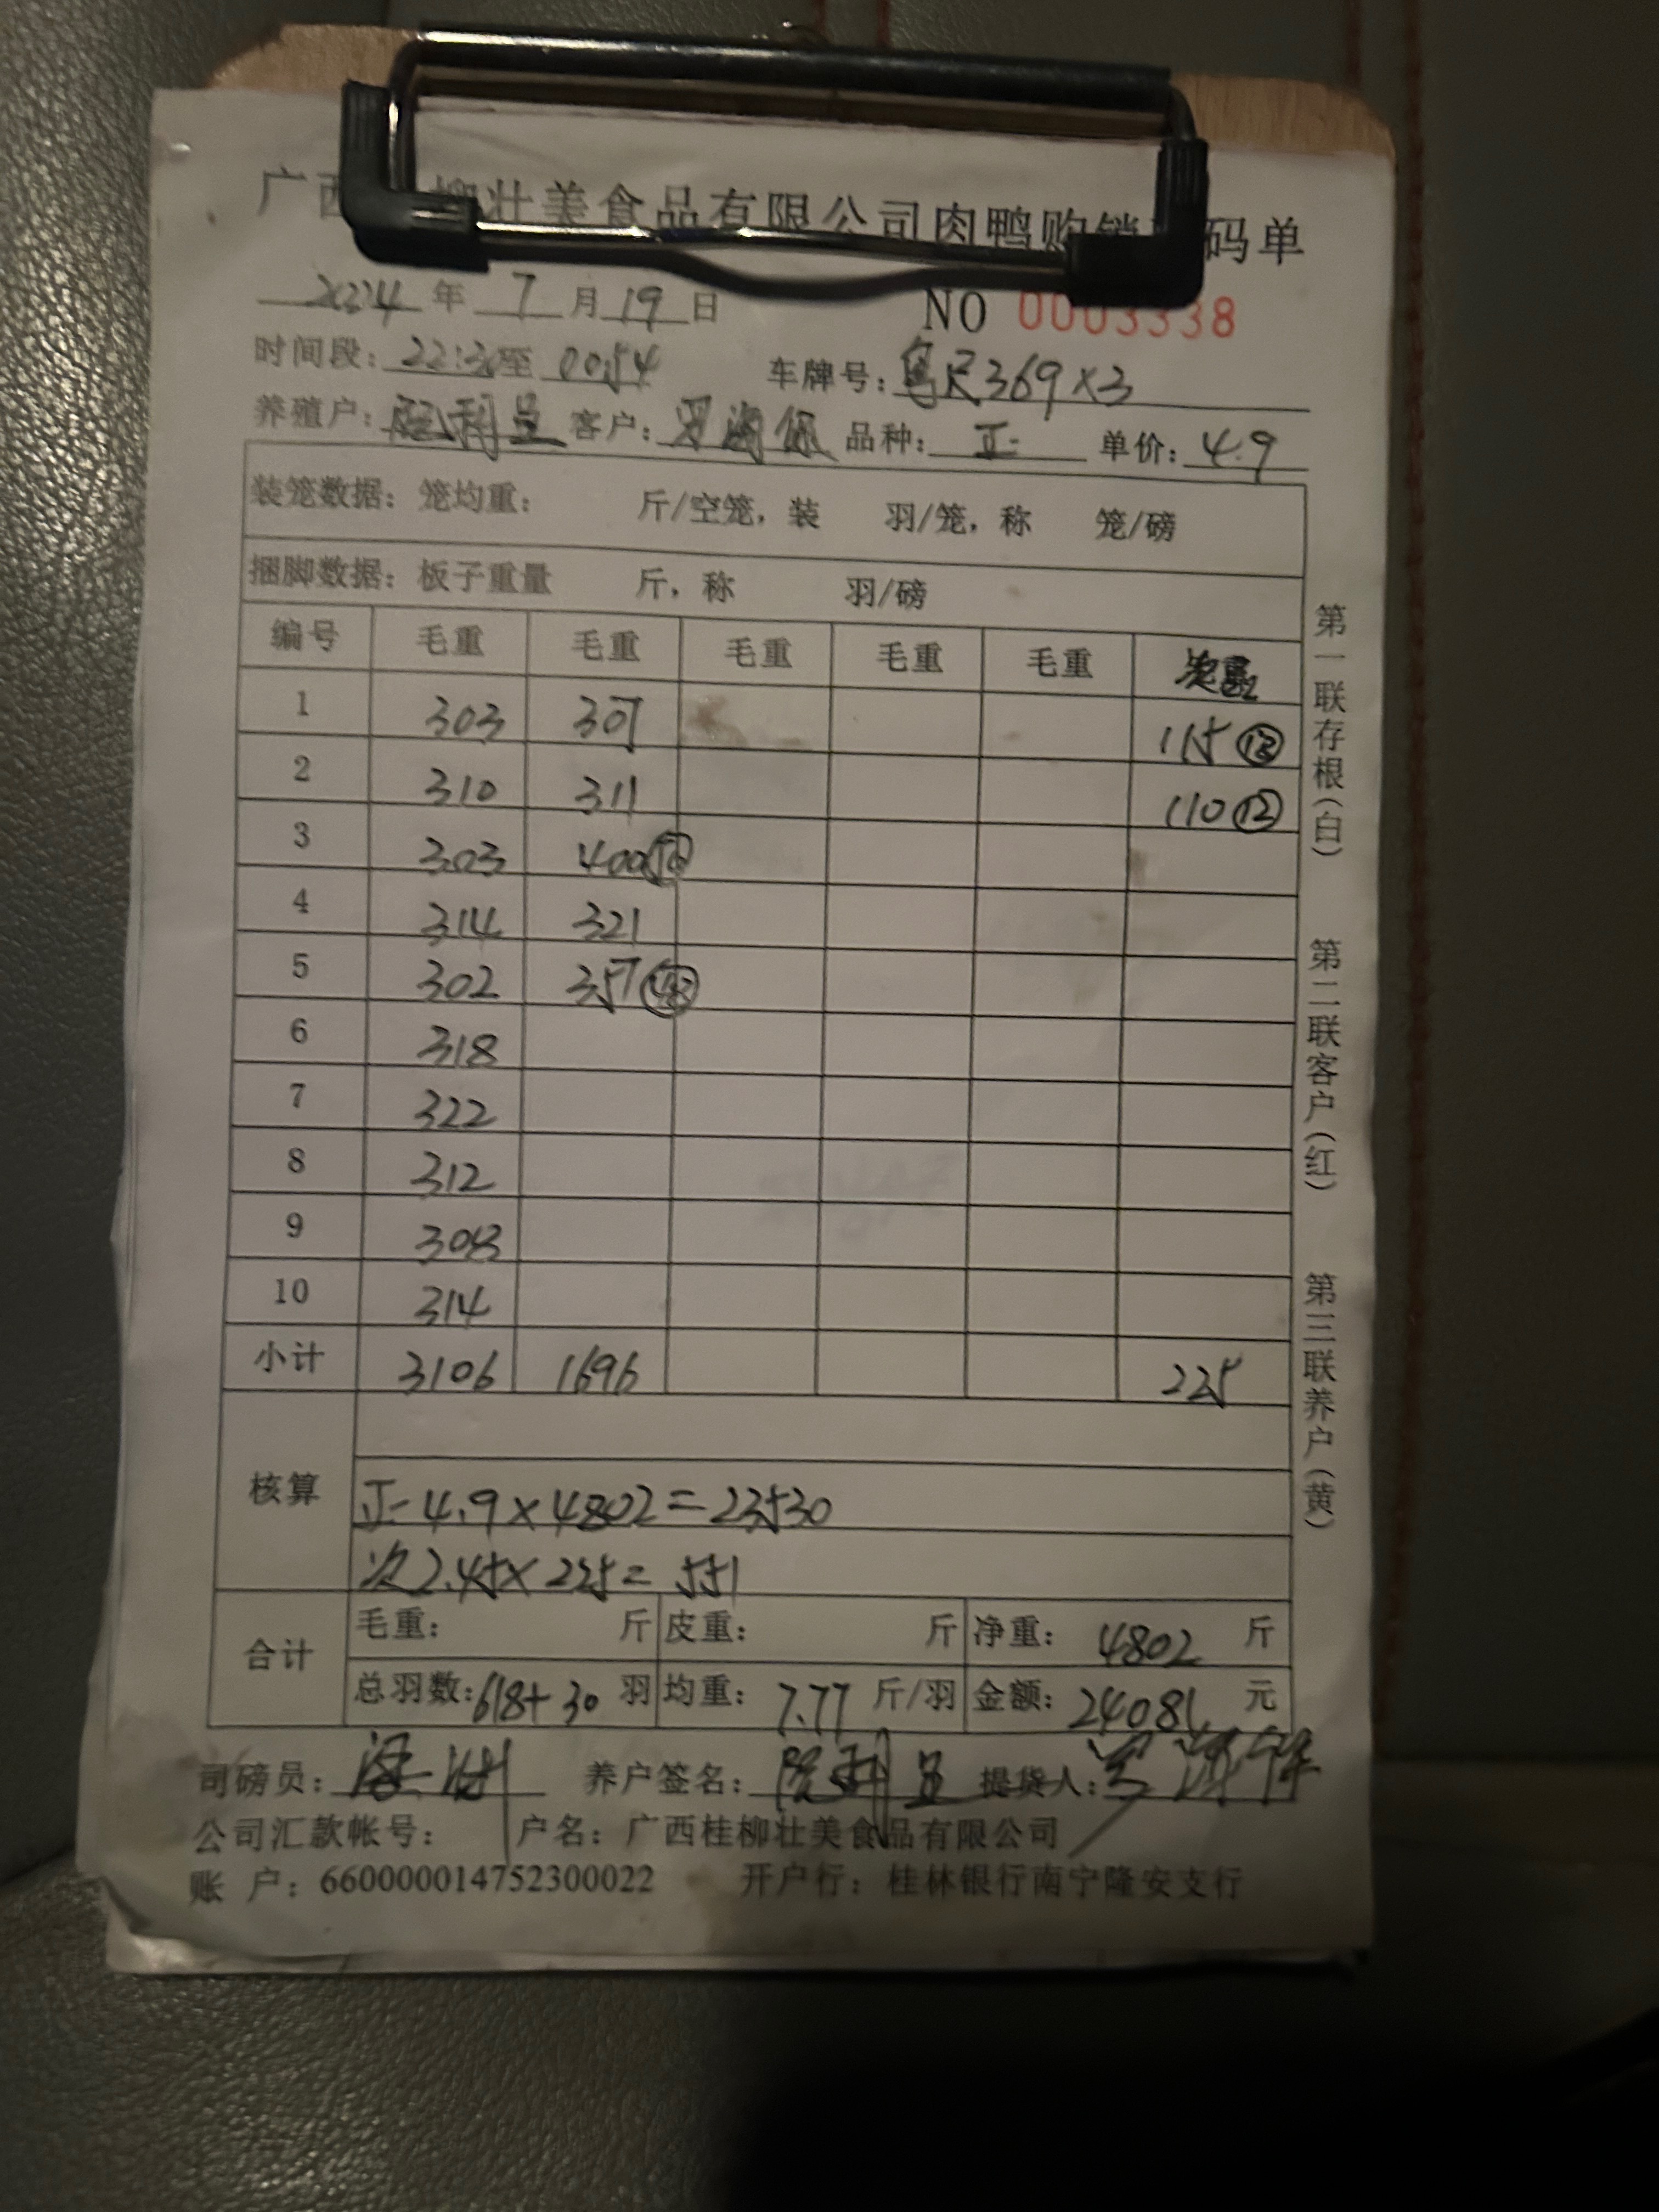 广西 柳壮美食品有限公司肉鸭购销 码单
2024 年 7 月 19 日 NO 0003338
时间段: 22:30 至 00:54 车牌号: 粤R369X3
养殖户: 客户: 品种: 正 单价: 4.9
装笼数据: 笼均重: 斤/空笼, 装 羽/笼, 称 笼/磅
捆脚数据: 板子重量 斤, 称 羽/磅
编号 毛重 毛重 毛重 毛重 毛重
1 303 307 115 ⑬
2 310 311 110 ⑫
3 303 400
4 314 321
5 302 357
6 318
7 322
8 312
9 308
10 314
小计 3106 1696 225
核算
正 4.9×4802=23530
次 2.45×225=551
合计 毛重: 斤 皮重: 斤 净重: 4802 斤
总羽数: 618+30 羽 均重: 7.77 斤/羽 金额: 24081 元
司磅员: 养户签名: 提货人:
公司汇款帐号: 户名: 广西桂柳壮美食品有限公司
账 户: 660000014752300022 开户行: 桂林银行南宁隆安支行
第一联存根(白)
第二联客户(红)
第三联养户(黄)